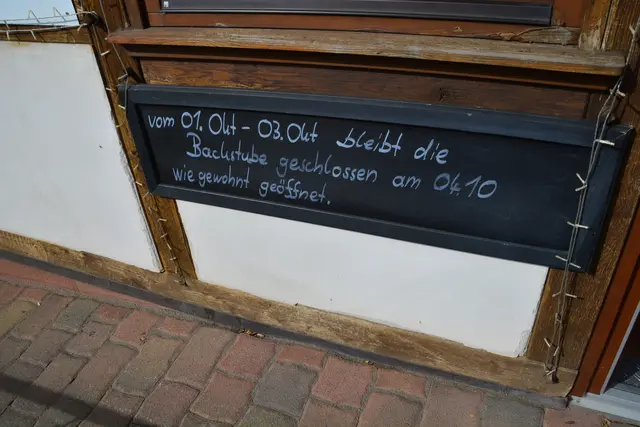 vom 01. Okt - 03. Okt bleibt die
Backstube geschlossen am 04.10
wie gewohnt geöffnet.